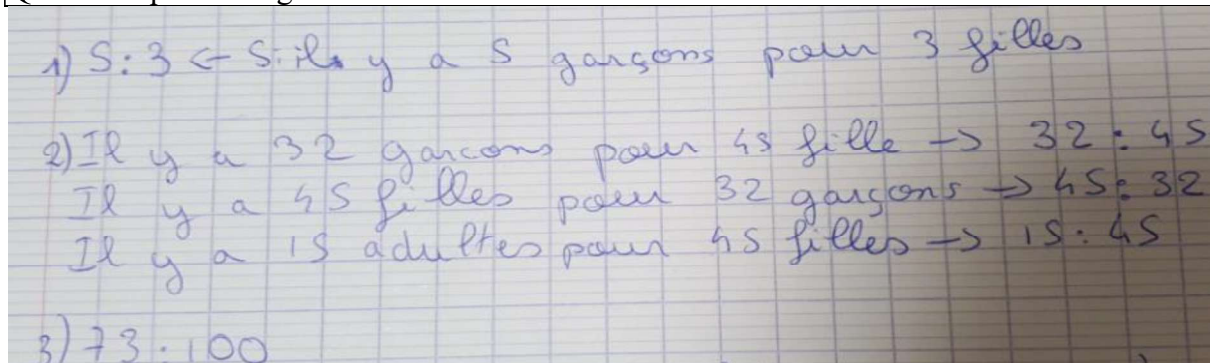 1) 5:3 ← S'il y a 5 garçons pour 3 filles
2) Il y a 32 garcons pour 45 fille → 32:45
Il y a 45 filles pour 32 garçons → 45:32
Il y a 15 adultes pour 45 filles → 15:45
3) 73:100